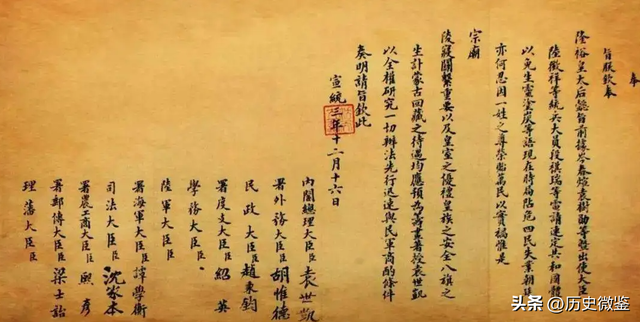 奉
旨朕欽奉
隆裕皇太后懿旨前據岑春煊袁樹勛等暨出使大臣
陸徵祥等統兵大員段祺瑞等電請速定共和國體
以免生靈塗炭等語現在時局阽危四民失業朝廷
亦何忍因一姓之尊榮貽萬民以實禍惟是
宗廟
陵寢關繫重要以及皇室之優禮皇族之安全八旗之
生計蒙古回藏之待遇均應預為籌畫著授袁世凱
以全權研究一切辦法先行迅速與民軍商酌條件
奏明請旨欽此
宣統三年十二月十六日
內閣總理大臣臣袁世凱
署外務大臣臣胡惟德
民政大臣臣趙秉鈞
署度支大臣臣紹英
學務大臣臣
陸軍大臣臣
署海軍大臣臣譚學衡
司法大臣臣沈家本
署農工商大臣臣熙彥
署郵傳大臣臣梁士詒
理藩大臣臣
头条 @历史微鉴